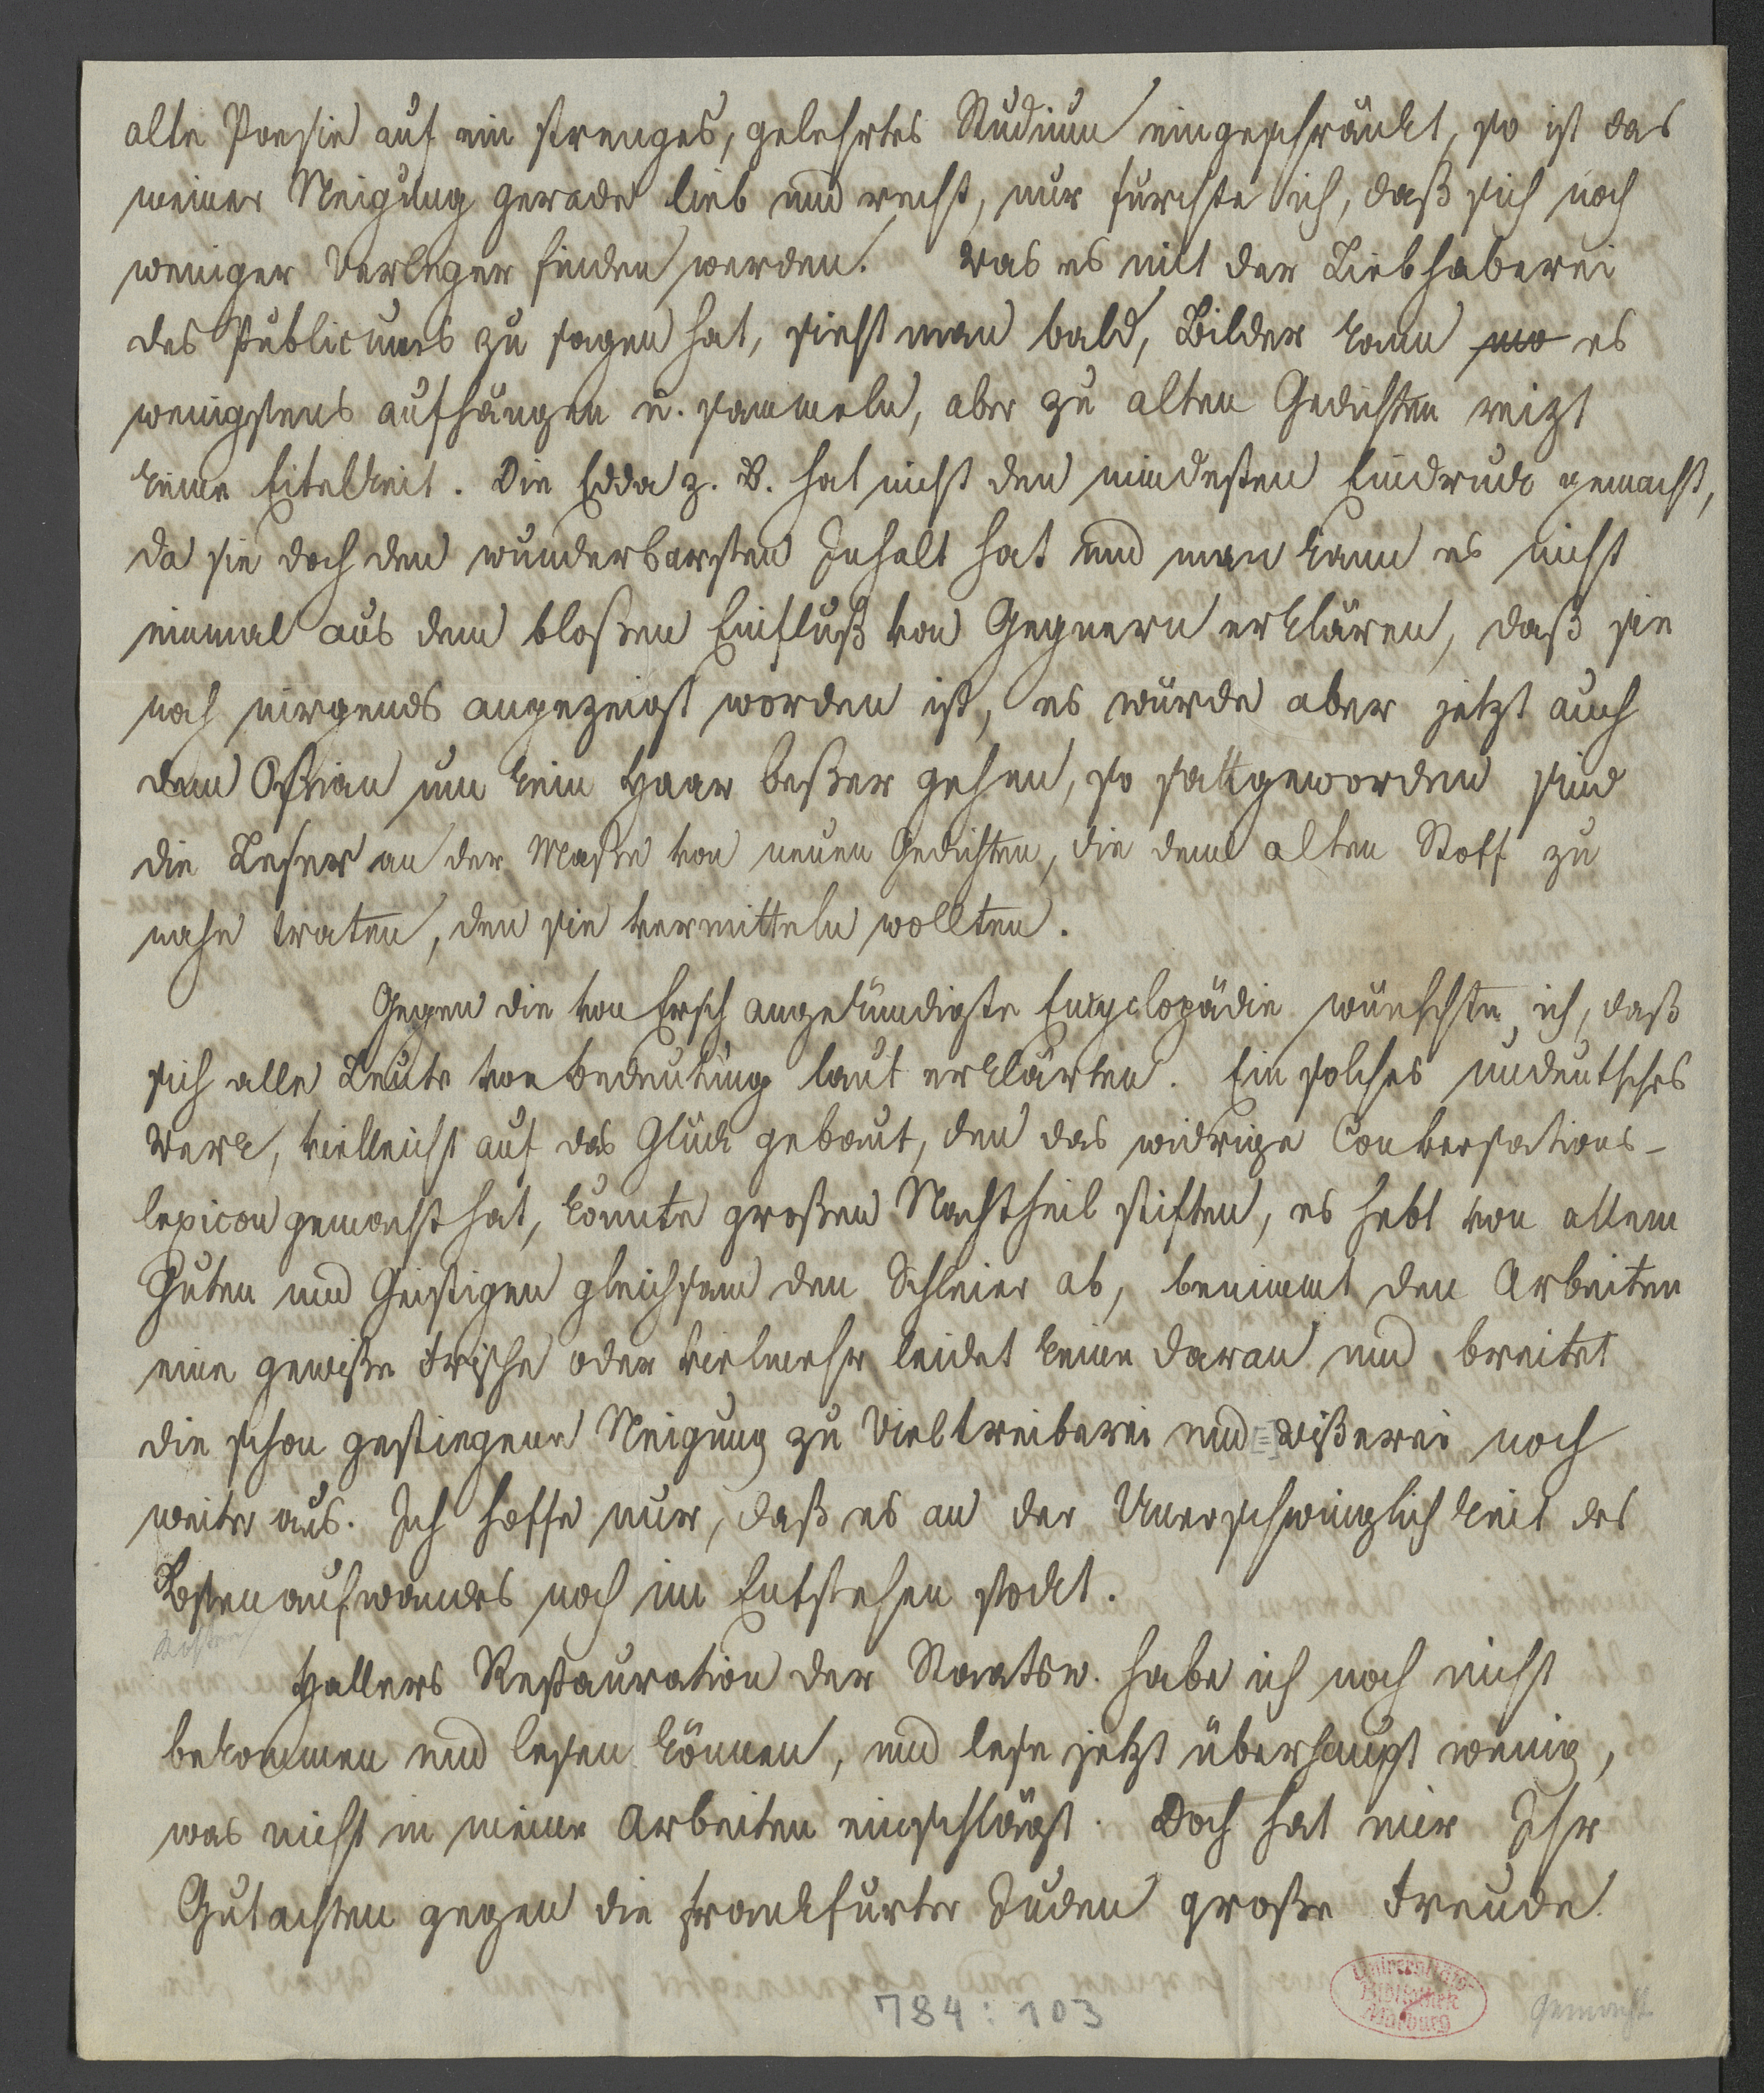 alte Poesie auf ein strenges, gelehrtes Studium eingeschränkt, so ist das
meiner Neigung gerade lieb und recht, nur furchte ich, daß sich noch
weniger Verleger finden werden. Was es mit der Liebhaberei
des Publicums zu sagen hat, sieht man bald, Bilder kann ma es
wenigstens aufhängen u. sammeln, aber zu alten Gedichten reizt
keine Eitelkeit. Die Edda z. B. hat nicht den mindesten Eindruck gemacht,
da sie doch den wunderbarsten Inhalt hat und man kann es nicht
einmal aus dem bloßen Einfluß von Gegnern erklären, daß sie
noch nirgends angezeigt worden ist, es würde aber jetzt auch
dem Ossian um kein Haar beßer gehen, so satt geworden sind
die Leser an der Maße von neuen Gedichten, die dem alten Stoff zu
nahe traten, den sie vermitteln wollten.
Gegen die von Ersch angekündigte Encyclopädie wünschte ich, daß
sich alle Leute von Bedeutung laut erklärten. Ein solches undeutsches
Werk, vielleicht auf das Glück gebaut, den das widrige Conversations-
lexicon gemacht hat, könnte großen Nachtheil stiften, es hebt von allem
Guten und Geistigen gleichsam den Schleier ab, benimmt den Arbeiten
eine gewiße Frische oder vielmehr leidet keine daran und breitet
die schon gestiegene Neigung zu Vieltreiberei und =wißerei noch
weiter aus. Ich hoffe nur, daß es an der Unerschwinglichkeit des
Kostenaufwandes noch im Entstehen stockt.
Kosten
Hallers Restauration der Staatsw. habe ich noch nicht
bekommen und lesen können, und lese jetzt überhaupt wenig,
was nicht in meine Arbeiten einschlägt. Doch hat mir Ihr
Gutachten gegen die Frankfurter Juden große Freude
gemacht
784:103
Universitäts-
Bibliothek
Marburg